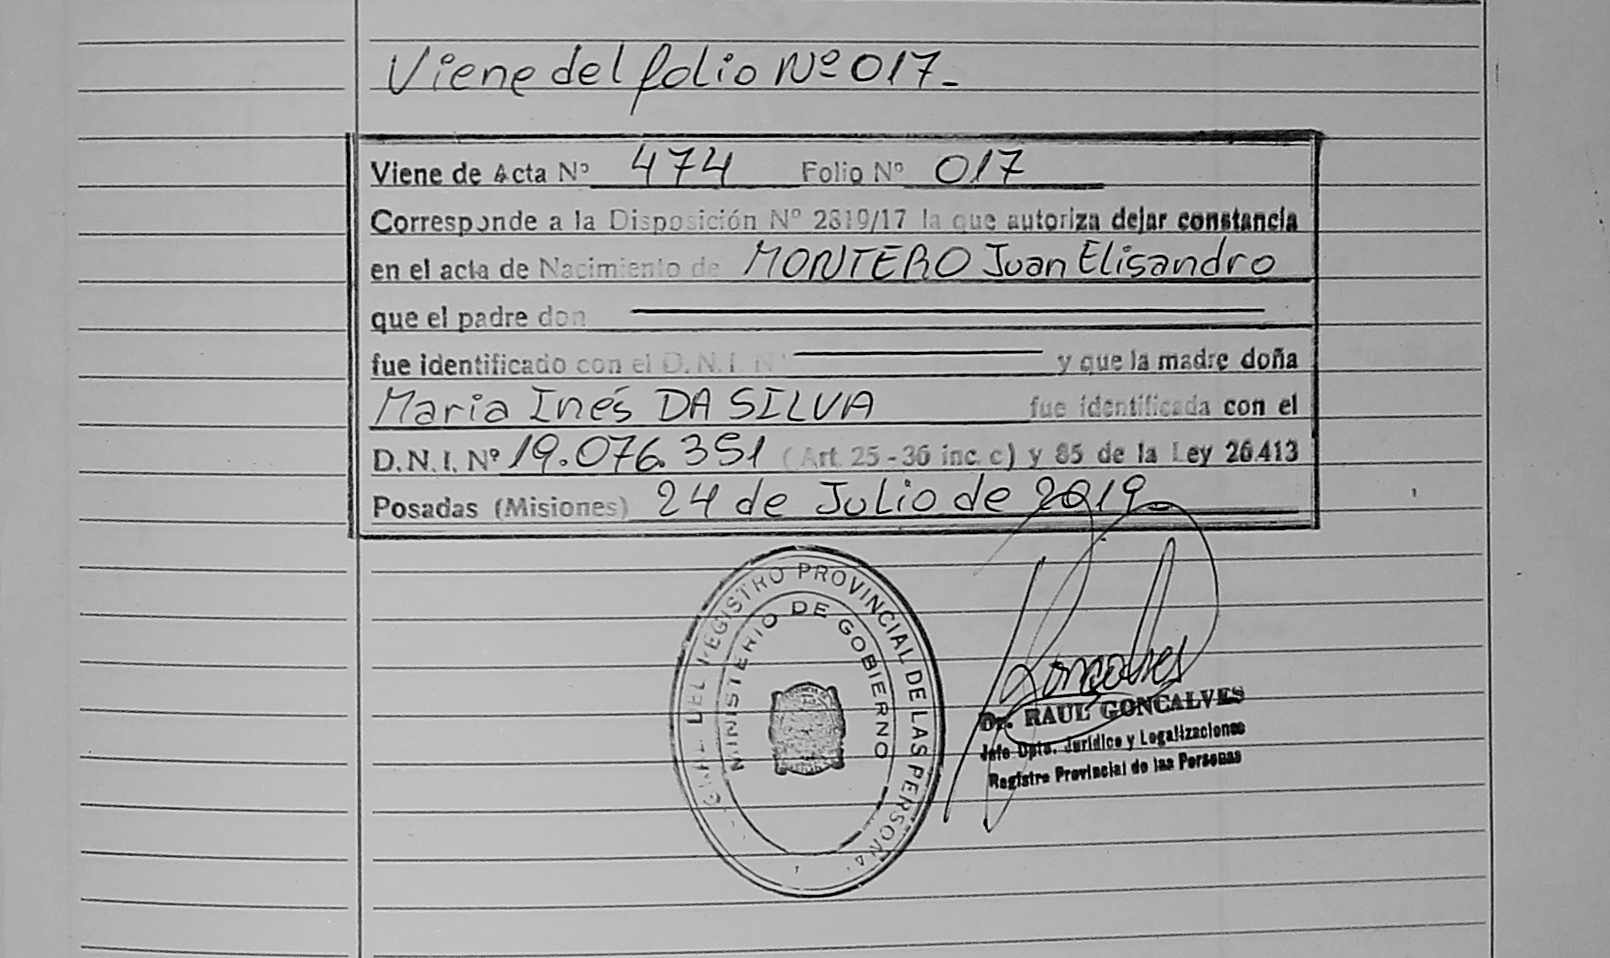 Viene del folio Nº 017-
Viene de Acta Nº 474 Folio Nº 017
Corresponde a la Disposición Nº 2819/17 la que autoriza dejar constancia
en el acta de Nacimiento de MONTERO Juan Elisandro
que el padre don
fue identificado con el D.N.I. Nº y que la madre doña
Maria Inés DA SILVA fue identificada con el
D.N.I. Nº 19.076.351 (Art. 25-36 inc. c) y 85 de la Ley 26.413
Posadas (Misiones) 24 de Julio de 2019
DEL REGISTRO PROVINCIAL DE LAS PERSONA
MINISTERIO DE GOBIERNO
Goncalves
Dr. RAUL GONCALVES
Jefe Dpto. Jurídico y Legalizaciones
Registro Provincial de las Personas